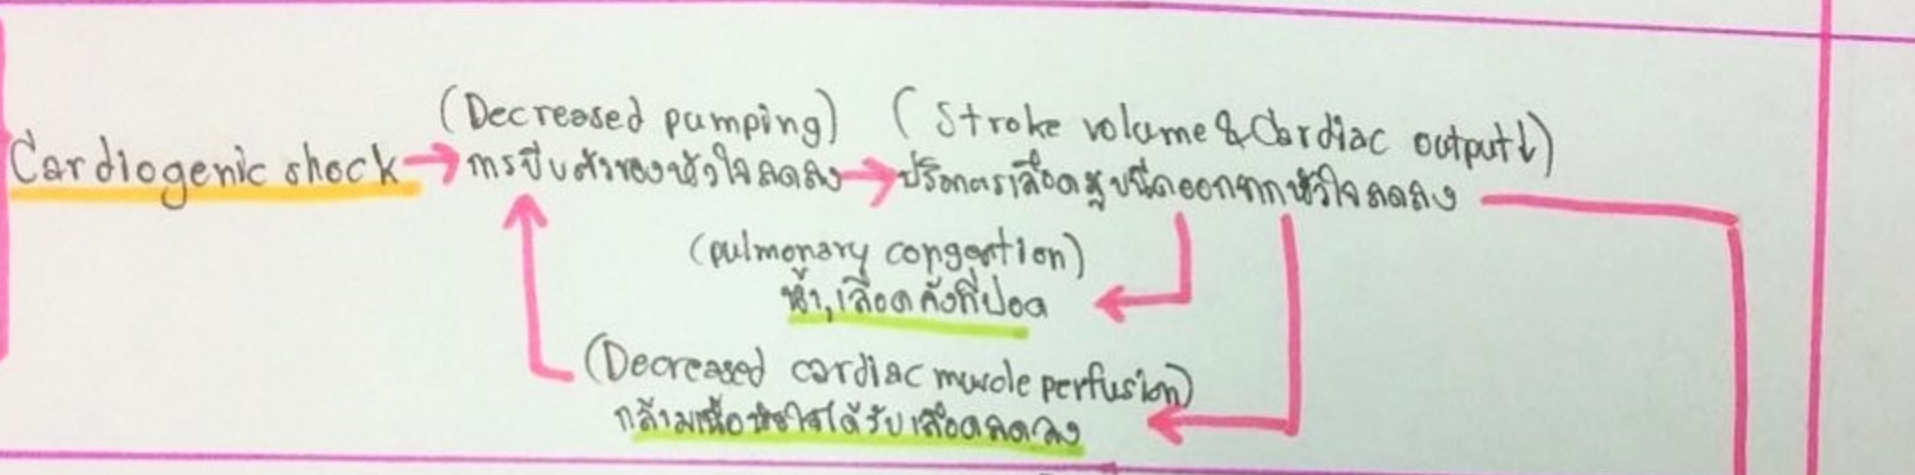 (Decreased pumping) (Stroke volume & Cardiac output↓)
Cardiogenic shock → การบีบตัวของหัวใจลดลง → ปริมาตรเลือดสูบฉีดออกจากหัวใจลดลง
(pulmonary congestion)
น้ำ,เลือดคั่งที่ปอด
(Decreased cardiac muscle perfusion)
กล้ามเนื้อหัวใจได้รับเลือดลดลง